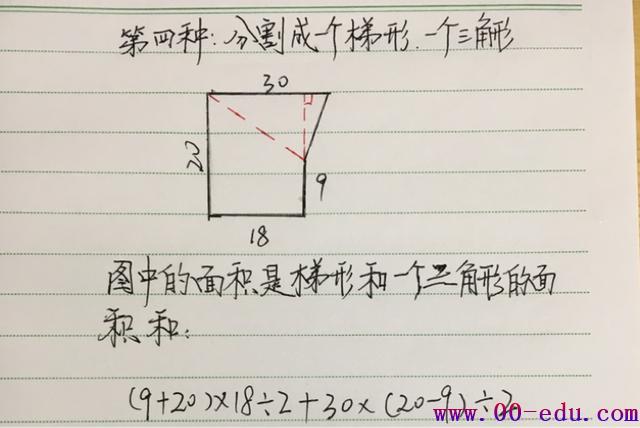 第四种：分割成一个梯形.一个三角形
30
20
9
18
图中的面积是梯形和一个三角形的面
积和：
(9+20)×18÷2+30×(20-9)÷2
www.00-edu.com